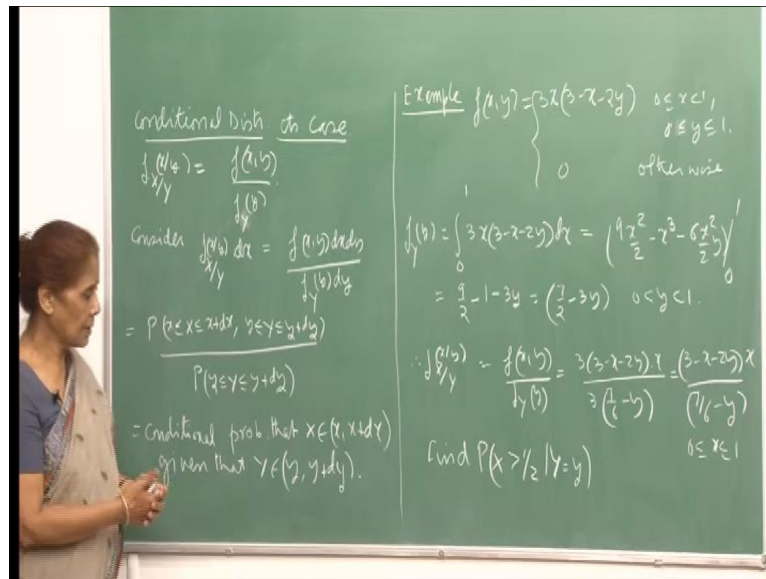 Conditional Dist. cts Case
f_{X/Y}(x/y) = f(x,y) / f_Y(y)
Consider f_{X/Y}(x/y) dx = f(x,y)dxdy / f_Y(y)dy
= P(x≤X≤x+dx, y≤Y≤y+dy) / P(y≤Y≤y+dy)
= Conditional prob. that X∈(x, x+dx)
given that Y∈(y, y+dy).
Example f(x,y) = { 3x(3-x-2y) 0≤x<1,
0≤y≤1.
0 otherwise
f_Y(y) = ∫_0^1 3x(3-x-2y)dx = (9x²/2 - x³ - 6x²/2 y)|_0^1
= 9/2 - 1 - 3y = (7/2 - 3y) 0<y<1.
∴ f_{X/Y}(x/y) = f(x,y)/f_Y(y) = 3(3-x-2y).x / 3(7/6 - y) = (3-x-2y)x / (7/6 - y)
0≤x≤1
Find P(X>1/2 | Y=y)